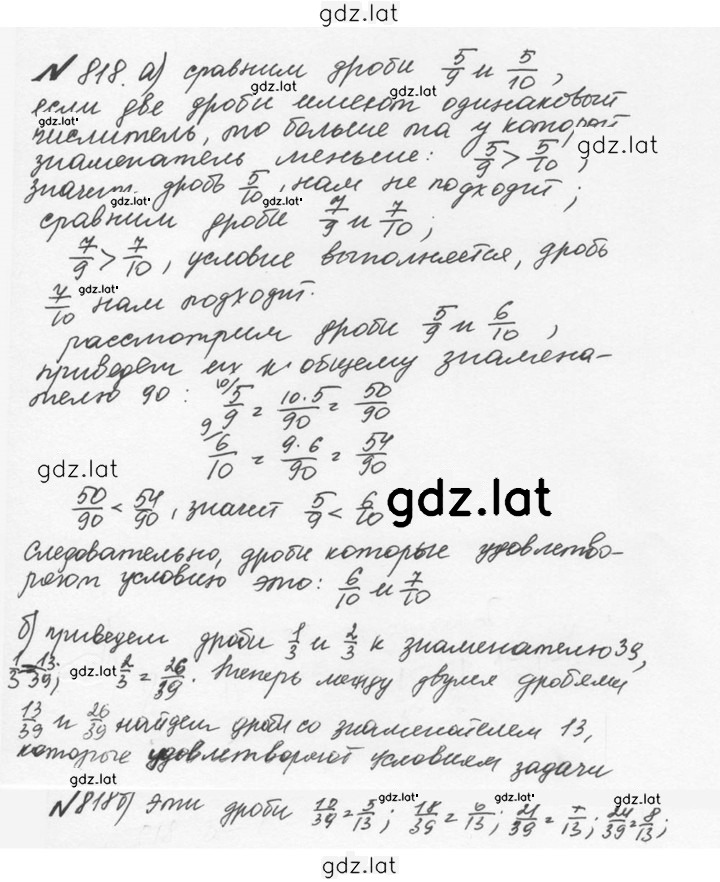 gdz.lat
№ 818. а) сравним дроби 5/9 и 5/10,
если две дроби имеют одинаковый
gdz.lat
числитель, то больше та у которой
gdz.lat
знаменатель меньше: 5/9 > 5/10,
gdz.lat gdz.lat
значит дробь 5/10, нам не подходит;
сравним дроби 7/9 и 7/10;
7/9 > 7/10, условие выполняется, дробь
gdz.lat
7/10 нам подходит.
рассмотрим дроби 5/9 и 6/10,
gdz.lat gdz.lat gdz.lat
приведем их к общему знамена-
телю 90: 10/ 5/9 = 10·5/90 = 50/90
9/ 6/10 = 9·6/90 = 54/90
gdz.lat
50/90 < 54/90, значит 5/9 < 6/10
gdz.lat
Следовательно, дроби которые удовлетво-
ряют условию это: 6/10 и 7/10
б) приведем дроби 1/3 и 2/3 к знаменателю 39,
1/3 = 13/39; gdz.lat 2/3 = 26/39. Теперь между двумя дробями
13/39 и 26/39 найдем дроби со знаменателем 13,
gdz.lat gdz.lat
которые удовлетворяют условием задачи
gdz.lat gdz.lat gdz.lat
№ 818 б) Эти дроби 5/13; 18/39 = 6/13; 21/39 = 7/13; 24/39 = 8/13;
gdz.lat